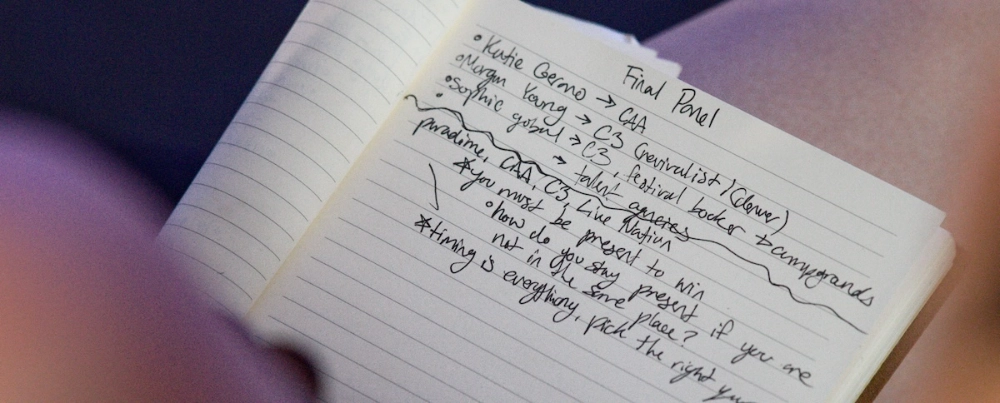 Final Panel
• Katie → CAA
• Morgan Young → C3 (revivalist) (Denver)
• Sophie → C3, festival booker + campgrounds
• → talent agencies
paradime, CAA, C3, Live Nation
* you must be present to win
• how do you stay present if you are
not in the same place?
* timing is everything, pick the right